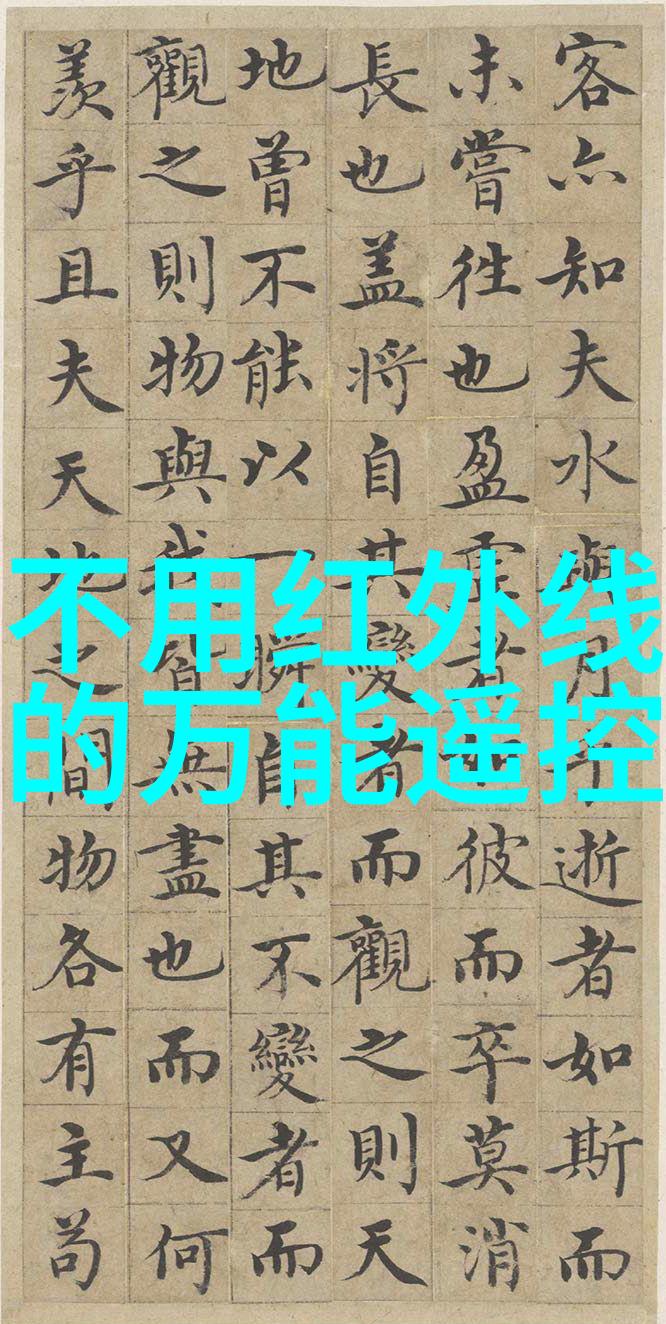 客亦知夫水與月乎逝者如斯而
未嘗往也盈虛者如彼而卒莫消
長也盖將自其變者而觀之則天
地曾不能以一瞬自其不變者而
觀之則物與我皆無盡也而又何
羨乎且夫天地之間物各有主苟
不用红外线
的万能遥控